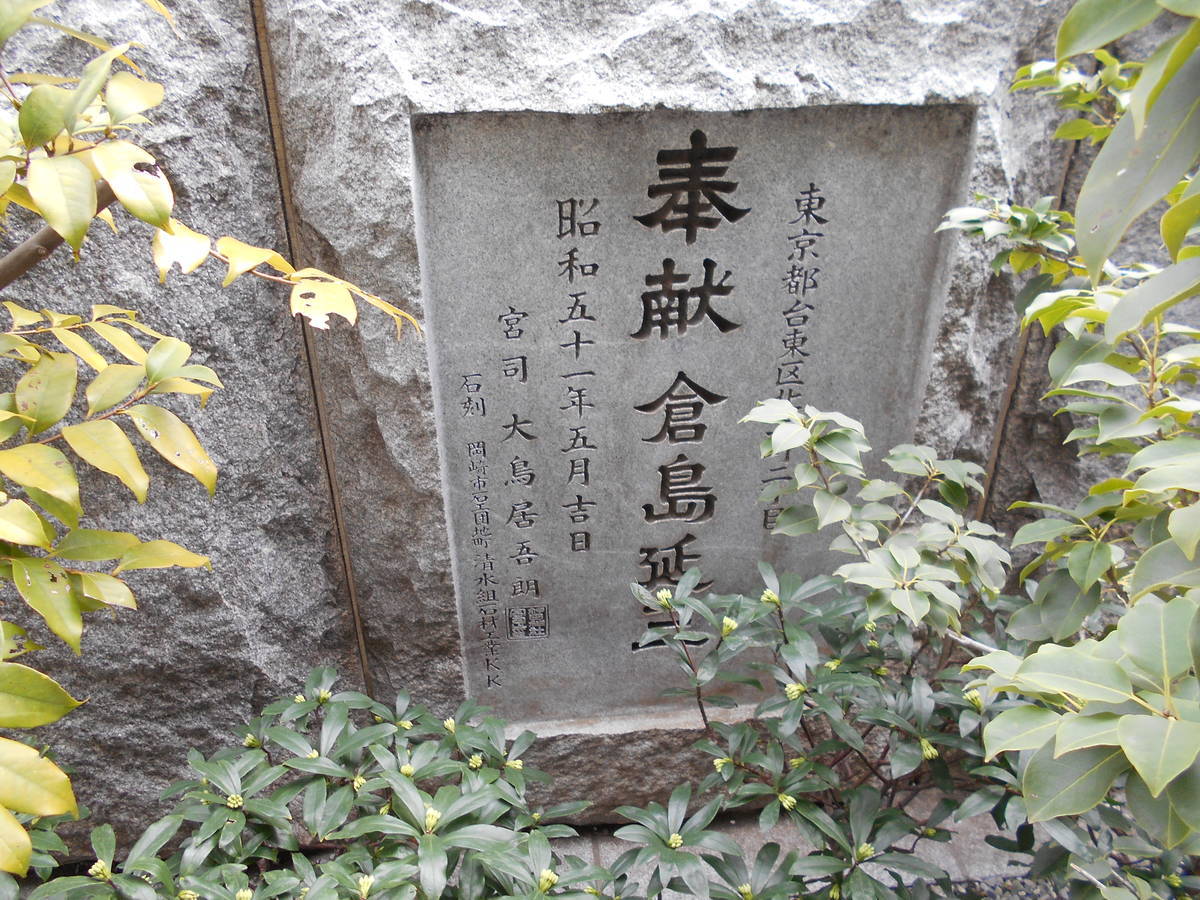 東京都台東区
二
奉献 倉島延三
昭和五十一年五月吉日
宮司 大鳥居吾朗
石刻 岡崎市石工団地町 清水組石材工業KK